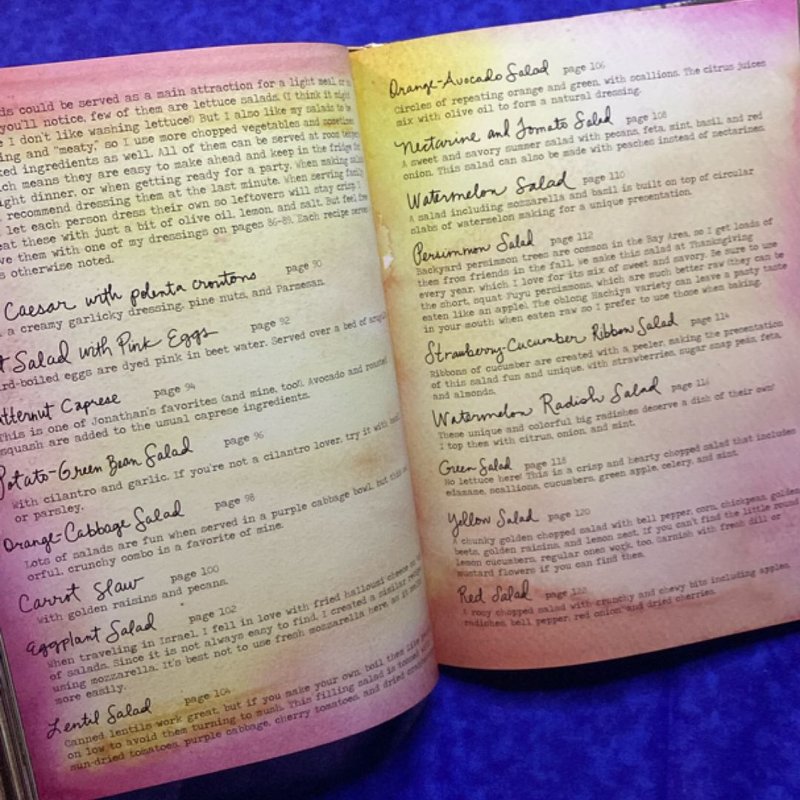 ds could be served as a main attraction for a light meal or
you'll notice, few of them are lettuce salads. (I think it might
e I don't like washing lettuce!) But I also like my salads to be
ing and "meaty," so I use more chopped vegetables and sometimes
ked ingredients as well. All of them can be served at room temper
ch means they are easy to make ahead and keep in the fridge for
ight dinner, or when getting ready for a party. When making salads
recommend dressing them at the last minute. When serving family
let each person dress their own so leftovers will stay crisp. I
eat these with just a bit of olive oil, lemon, and salt. But feel free
ve them with one of my dressings on pages 86-89. Each recipe serves
s otherwise noted.
Caesar with polenta croutons page 90
a creamy garlicky dressing, pine nuts, and Parmesan.
t Salad with Pink Eggs page 92
rd-boiled eggs are dyed pink in beet water. Served over a bed of arugula
utternut Caprese page 94
This is one of Jonathan's favorites (and mine, too!). Avocado and roasted
squash are added to the usual caprese ingredients.
Potato-Green Bean Salad page 96
With cilantro and garlic. If you're not a cilantro lover, try it with basil
or parsley.
Orange-Cabbage Salad page 98
Lots of salads are fun when served in a purple cabbage bowl, but this
orful, crunchy combo is a favorite of mine.
Carrot Slaw page 100
with golden raisins and pecans.
Eggplant Salad page 102
When traveling in Israel, I fell in love with fried halloumi cheese on
of salads. Since it is not always easy to find, I created a similar recipe
using mozzarella. It's best not to use fresh mozzarella here as it
more easily.
Lentil Salad page 104
Canned lentils work great, but if you make your own, boil them
on low to avoid them turning to mush. This filling salad is tossed with
sun-dried tomatoes, purple cabbage, cherry tomatoes, and dried
Orange-Avocado Salad page 106
Circles of repeating orange and green, with scallions. The citrus juices
mix with olive oil to form a natural dressing.
Nectarine and Tomato Salad page 108
A sweet and savory summer salad with pecans, feta, mint, basil, and red
onion. This salad can also be made with peaches instead of nectarines.
Watermelon Salad page 110
A salad including mozzarella and basil is built on top of circular
slabs of watermelon making for a unique presentation.
Persimmon Salad page 112
Backyard persimmon trees are common in the Bay Area, so I get loads of
them from friends in the fall. We make this salad at Thanksgiving
every year, which I love for its mix of sweet and savory. Be sure to use
the short, squat Fuyu persimmons, which are much better raw (they can be
eaten like an apple). The oblong Hachiya variety can leave a pasty taste
in your mouth when eaten raw so I prefer to use those when baking.
Strawberry-Cucumber Ribbon Salad page 114
Ribbons of cucumber are created with a peeler, making the presentation
of this salad fun and unique, with strawberries, sugar snap peas, feta,
and almonds.
Watermelon Radish Salad page 116
These unique and colorful big radishes deserve a dish of their own!
I top them with citrus, onion, and mint.
Green Salad page 118
No lettuce here! This is a crisp and hearty chopped salad that includes
edamame, scallions, cucumbers, green apple, celery, and mint.
Yellow Salad page 120
A chunky golden chopped salad with bell pepper, corn, chickpeas, golden
beets, golden raisins, and lemon zest. If you can't find the little round
lemon cucumbers, regular ones work, too. Garnish with fresh dill or
mustard flowers if you can find them.
Red Salad page 122
A rosy chopped salad with crunchy and chewy bits including apples,
radishes, bell pepper, red onion, and dried cherries.